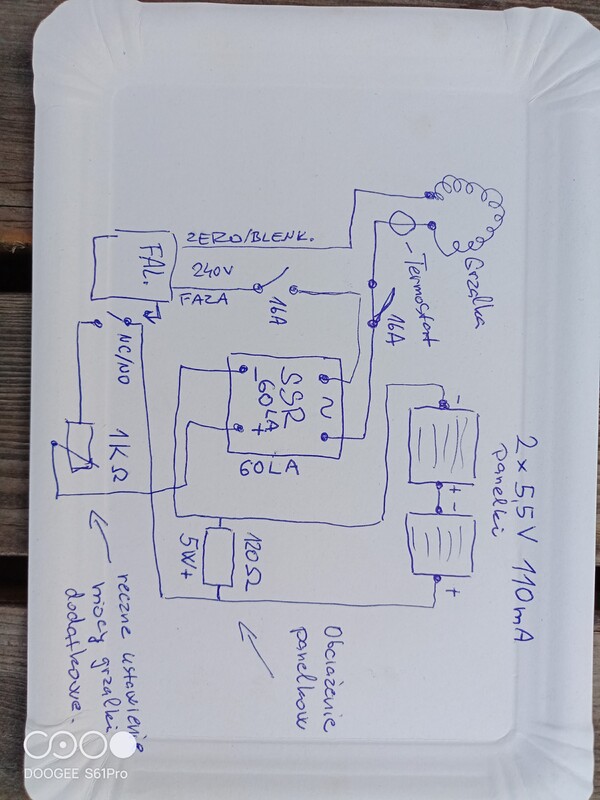 ZERO/BLENK.
FAL.
240V
FAZA
16A
NC/NO
Grzałka
-Termostat
16A
SSR
-60LA
+
~
60LA
1KΩ
2 x 5,5V 110mA
panelki
-
+ -
+
120Ω
5W+
Obciążenie
panelków
ręczne ustawienie
mocy grzałki
dodatkowe.
DOOGEE S61Pro